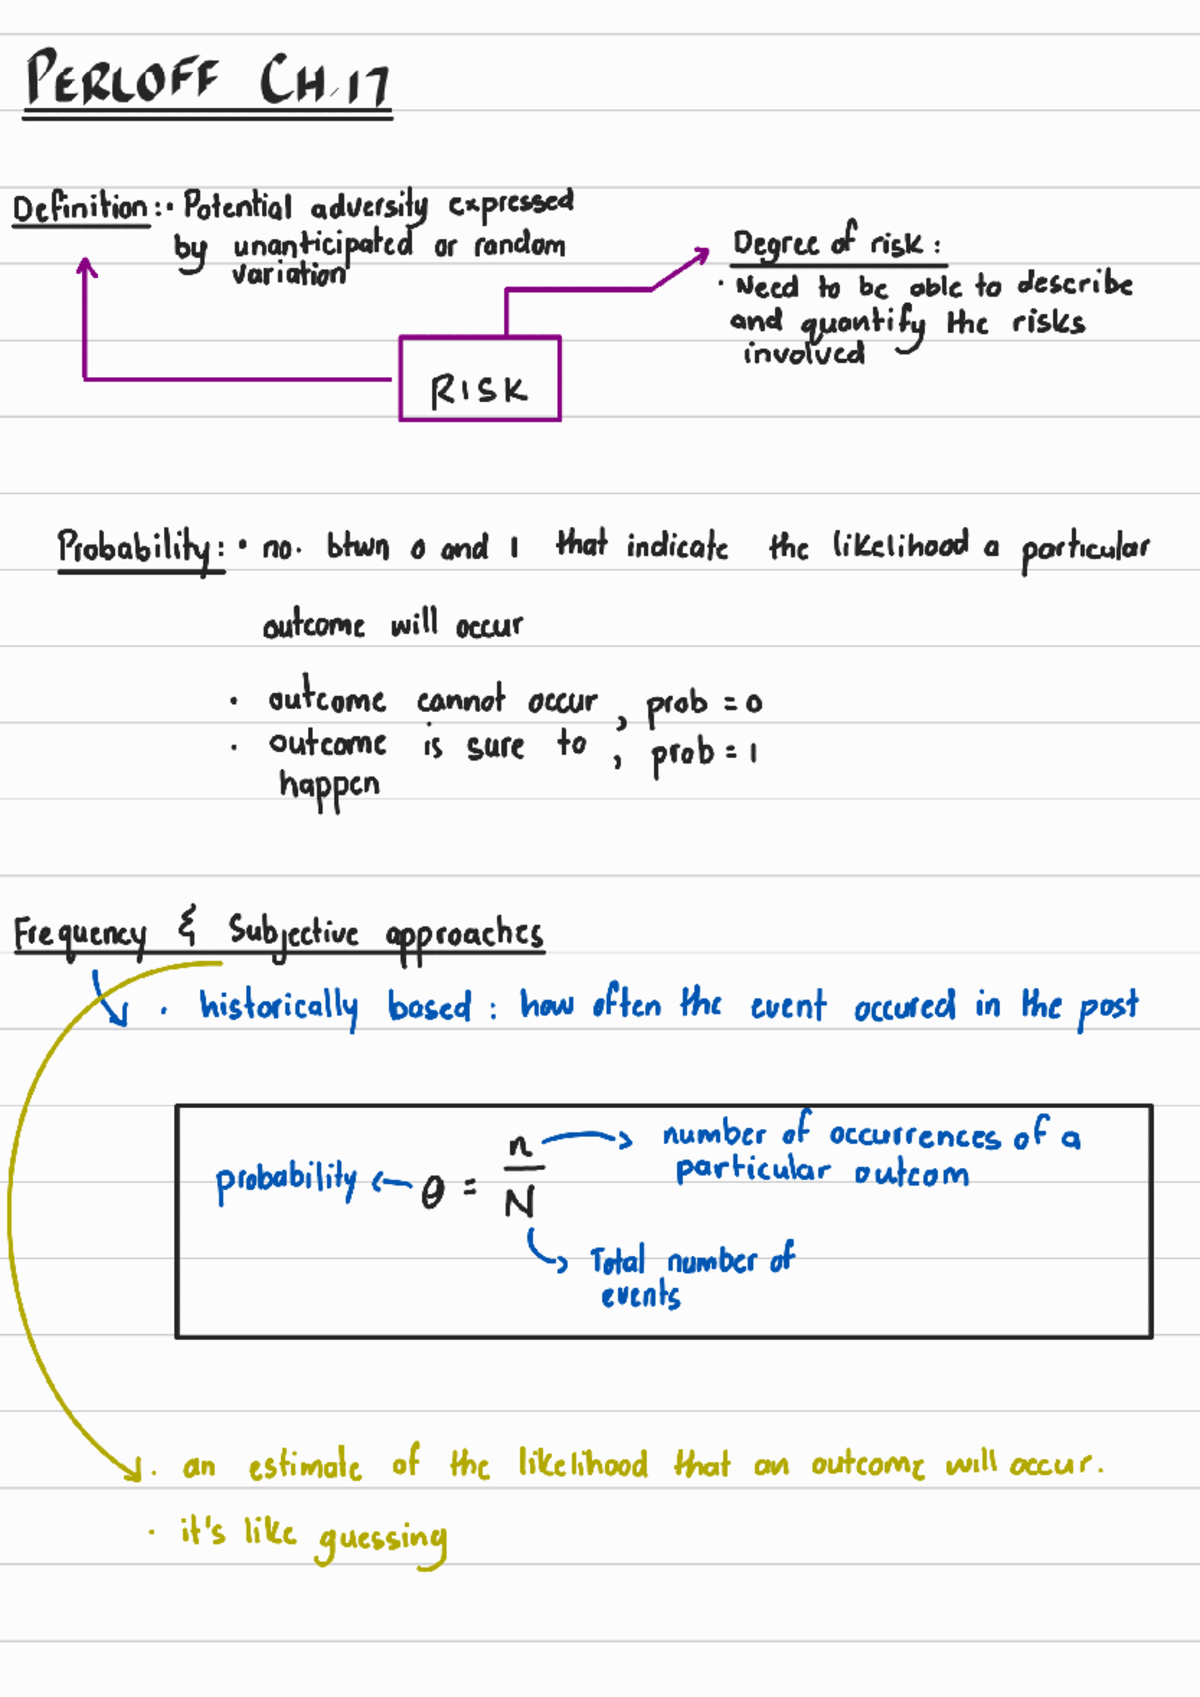 PERLOFF CH.17
Definition:• Potential adversity expressed
by unanticipated or random
variation
Degree of risk:
• Need to be able to describe
and quantify the risks
involved
RISK
Probability: • no. btwn 0 and 1 that indicate the likelihood a particular
outcome will occur
• outcome cannot occur , prob = 0
• outcome is sure to , prob = 1
happen
Frequency & Subjective approaches
• historically based : how often the event occured in the past
probability ← θ = n/N
→ number of occurrences of a
particular outcom
→ Total number of
events
• an estimate of the likelihood that an outcome will occur.
• it's like guessing